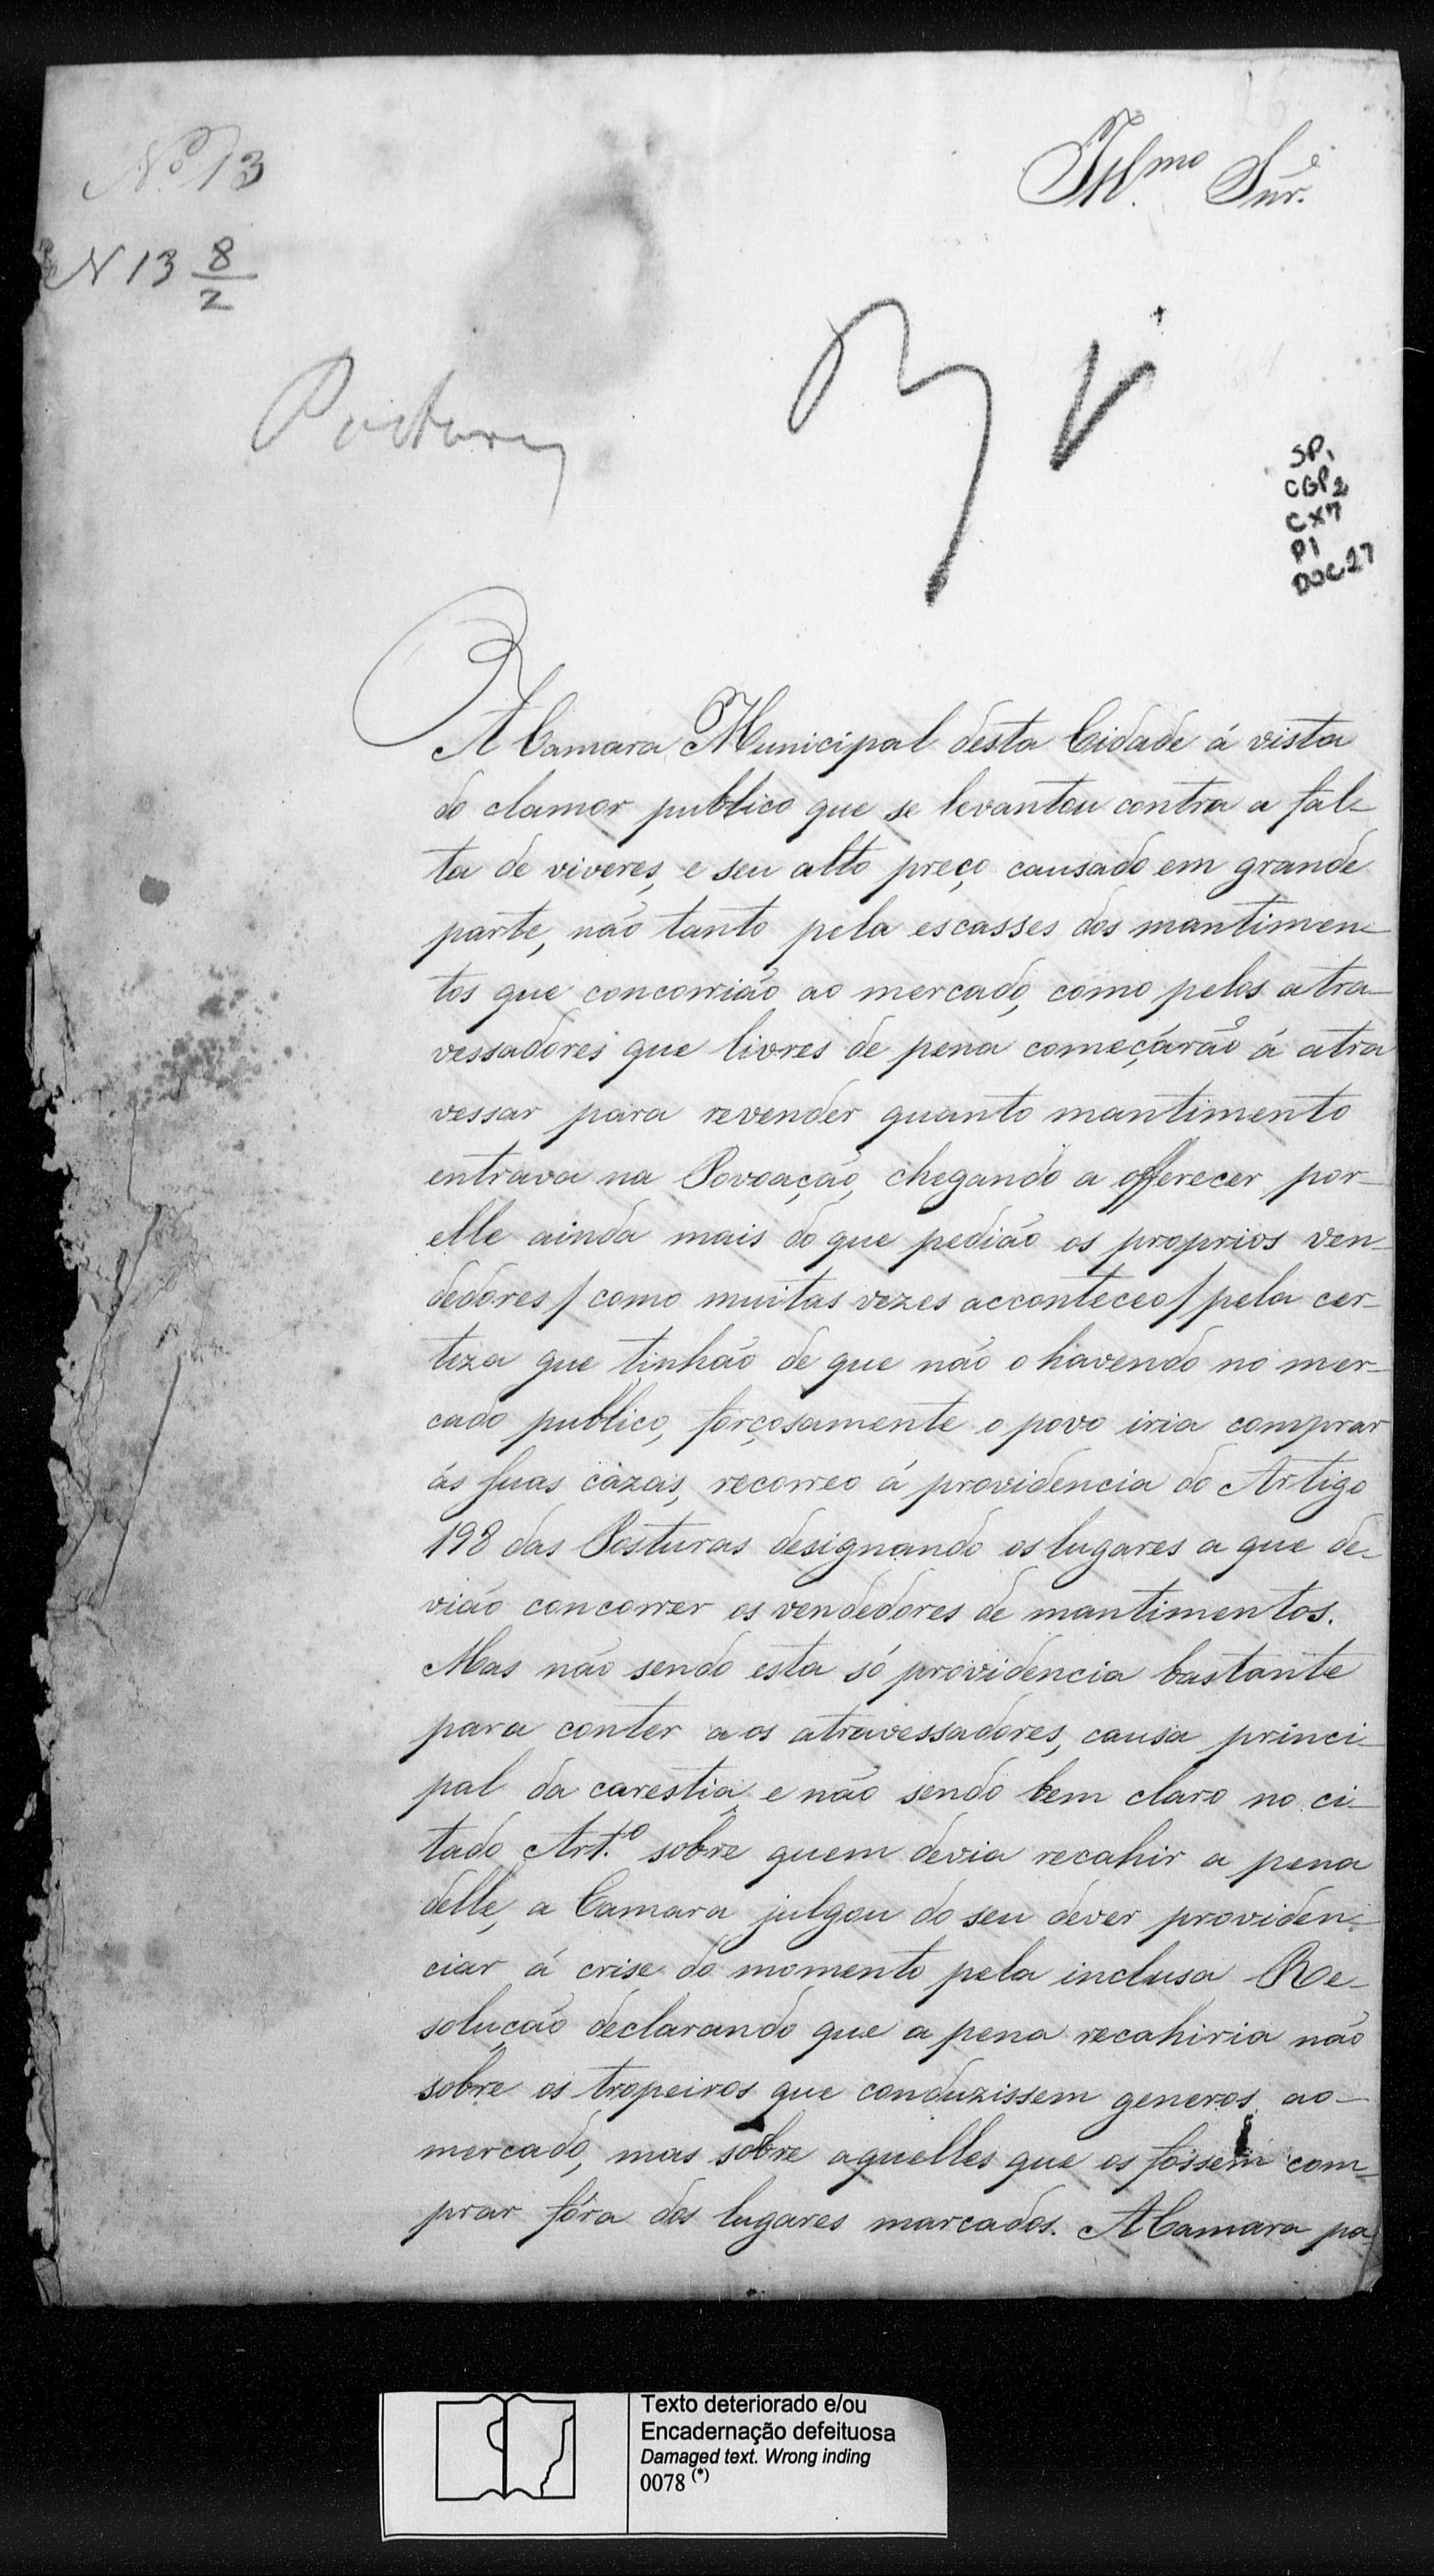 Nº 13
Illmo Snr.
N 13 8/2
Posturas
SP1
CGP2
CX7
P1
DOC27
A Camara Municipal desta Cidade á vista
do clamor publico que se levantou contra a fal-
ta de viveres, e seu alto preço causado em grande
parte, não tanto pela escasses dos mantimen-
tos que concorrião ao mercado, como pelos atra-
vessadores que livres de pena começárão á atra
vessar para revender quanto mantimento
entrava na Povoação, chegando a offerecer por-
elle ainda mais do que pedião os proprios ven-
dedores / como muitas vezes acconteceo / pela cer-
teza que tinhão de que não o havendo no mer-
cado publico, forçosamente o povo iria comprar
ás suas cazas, recorreo á providencia do Artigo
198 das Posturas designando os lugares a que de-
vião concorrer os vendedores de mantimentos.
Mas não sendo esta só providencia bastante
para conter aos atravessadores, causa princi-
pal da carestia, e não sendo bem claro no ci-
tado Art.º sobre quem devia recahir a pena
delle, a Camara julgou do seu dever providen-
ciar á crise do momento pela inclusa Re-
solução declarando que a pena recahiria não
sobre os tropeiros que conduzissem generos ao-
mercado, mas sobre aquelles que os fossem com-
prar fóra dos lugares marcados. A Camara pa
Texto deteriorado e/ou
Encadernação defeituosa
Damaged text. Wrong inding
0078 (*)